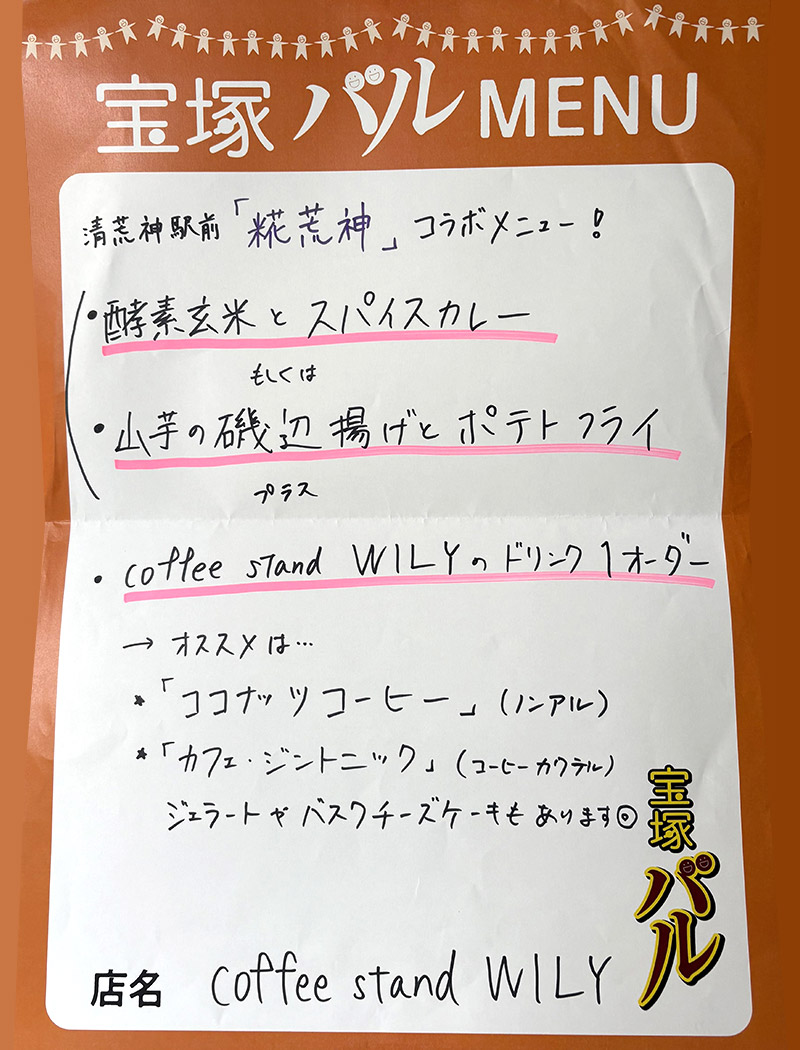 宝塚バルMENU
清荒神駅前「糀荒神」コラボメニュー!
・酵素玄米とスパイスカレー
もしくは
・山芋の磯辺揚げとポテトフライ
プラス
・coffee stand WILYのドリンク1オーダー
→オススメは…
*「ココナッツコーヒー」(ノンアル)
*「カフェ・ジントニック」(コーヒーカクテル)
ジェラートやバスクチーズケーキもあります◎
宝塚
バル
店名 coffee stand WILY